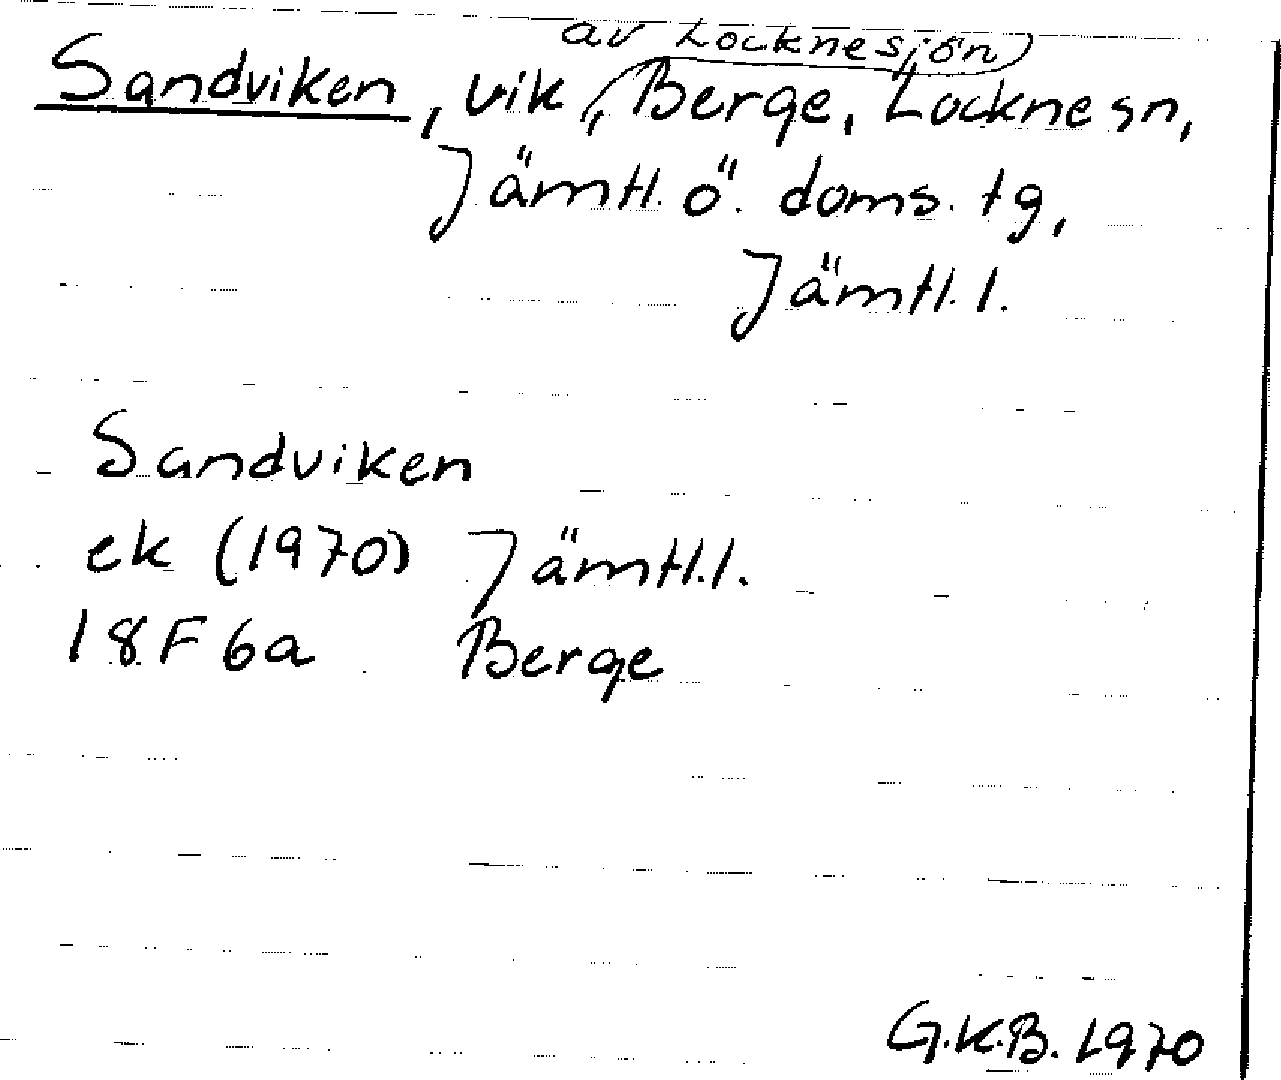 av Locknesjön
Sandviken, vik, Berge, Lockne sn,
Jämtl. ö. doms. tg,
Jämtl. l.
Sandviken
ek (1970) Jämtl. l.
18F 6a Berge
G.K.B. 1970